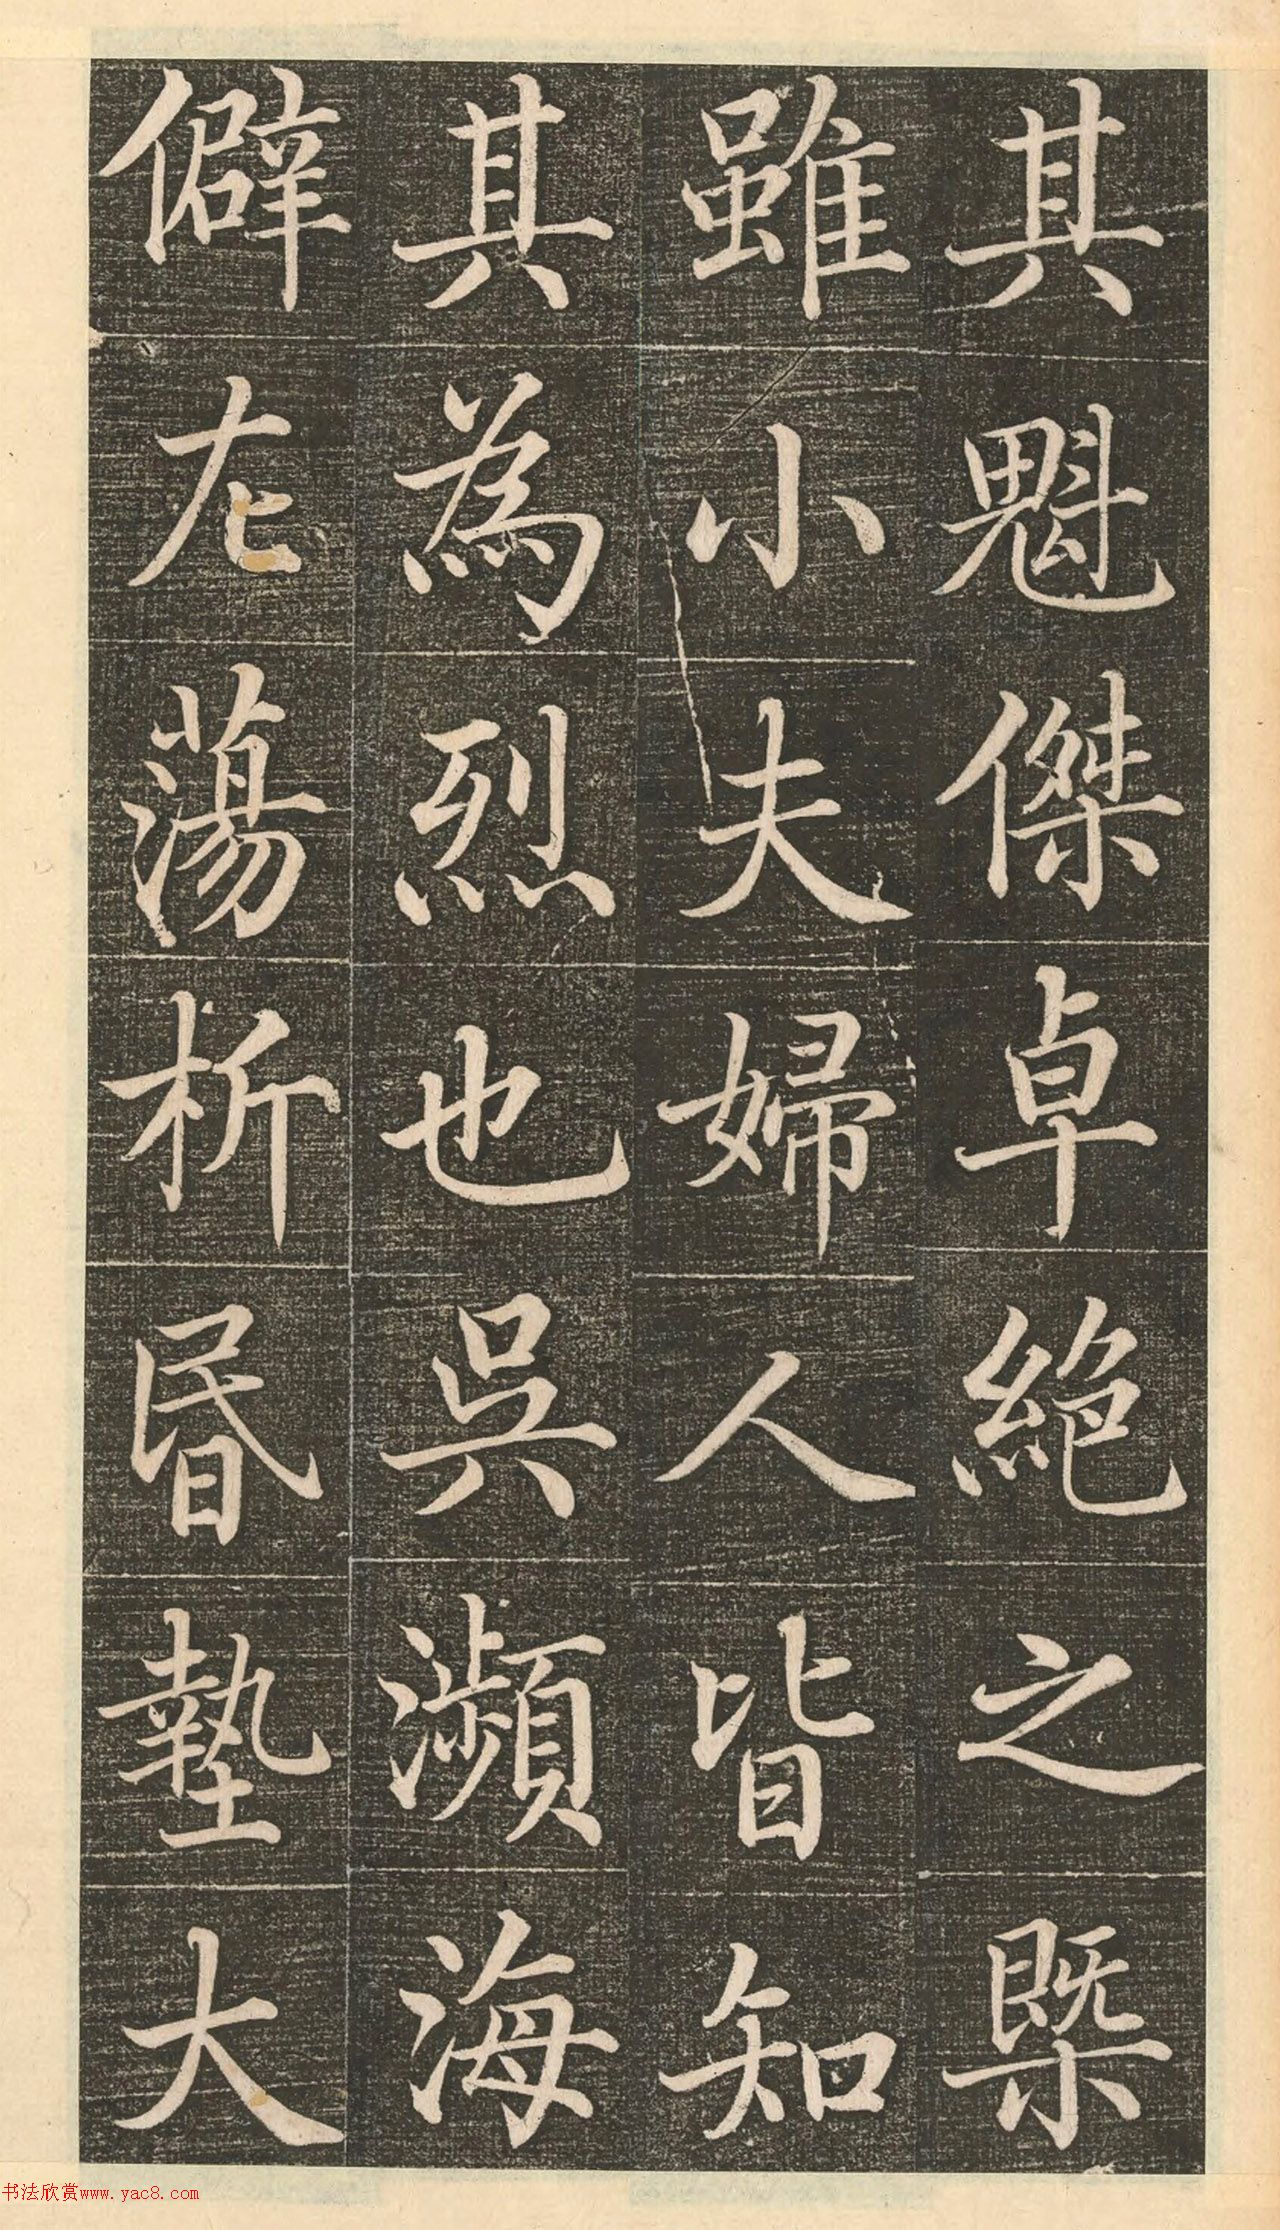 其魁傑卓絕之槩
雖小夫婦人皆知
其為烈也吳瀕海
僻左蕩析昬墊大
书法欣赏www.yac8.com